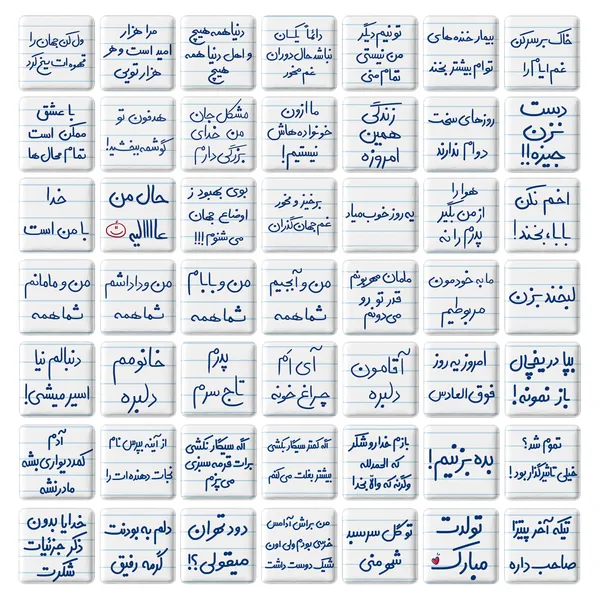 خاک بر سر کن
غم ایام را
بیمار خنده های
توام بیشتر بخند
تو نیم دیگر
من نیستی
تمام منی
دائماً یکسان
نباشد حال دوران
غم مخور
دنیا همه هیچ
و اهل دنیا همه
هیچ
مرا هزار
امید است و هر
هزار تویی
ول کن جهان را
قهوه ات یخ کرد
دست
نزن
جیزه!!
روزهای سخت
دوام ندارند
زندگی
همین
امروزه
ما ازون
خونواده هاش
نیستیم!
مشکل جان
من خدای
بزرگی دارم
هدفون تو
گوشمه ببخشید!
با عشق
ممکن است
تمام محال ها
اخم نکن
بابا بخند!
هوا را
از من بگیر
پدرم را نه
یه روز خوب میاد
برخیز و مخور
غم جهان گذران
بوی بهبود ز
اوضاع جهان
می شنوم!!!
حال من
عاااالیه
خدا
با من است
لبخند بزن
ما به خودمون
مربوطیم
مامان مهربونم
قدر تو رو
می دونم
من و آبجیم
شما همه
من و بابام
شما همه
من و داداشم
شما همه
من و مامانم
شما همه
بپا در یخچال
باز نمونه!
امروز یه روز
فوق العادس
آقامون
دلبره
آی اَم
چراغ خونه
پدرم
تاج سرم
خانومم
دلبره
دنبالم نیا
اسیر میشی!
تموم شد؟
خیلی تاثیرگذار بود!
بده بزنیم!
بازم خدا رو شکر
که الحمدلله
وگرنه که والا بخدا
اگه کمتر سیگار بکشی
بیشتر بغلت می کنم
اگه سیگار نکشی
برات قرمه سبزی
می پزم
از آینه بپرس نام
نجات دهنده ات را
آدم
کمد دیواری بشه
مادر نشه
تیکه آخر پیتزا
صاحب داره
تولدت
مبارک
تو گل سرسبد
شهر منی
من براش آدامس
خرسی بودم ولی اون
شیک دوست داشت
دود تهران
میقولی؟!
دلم به بودنت
گرمه رفیق
خدایا بدون
ذکر جزئیات
شکرت